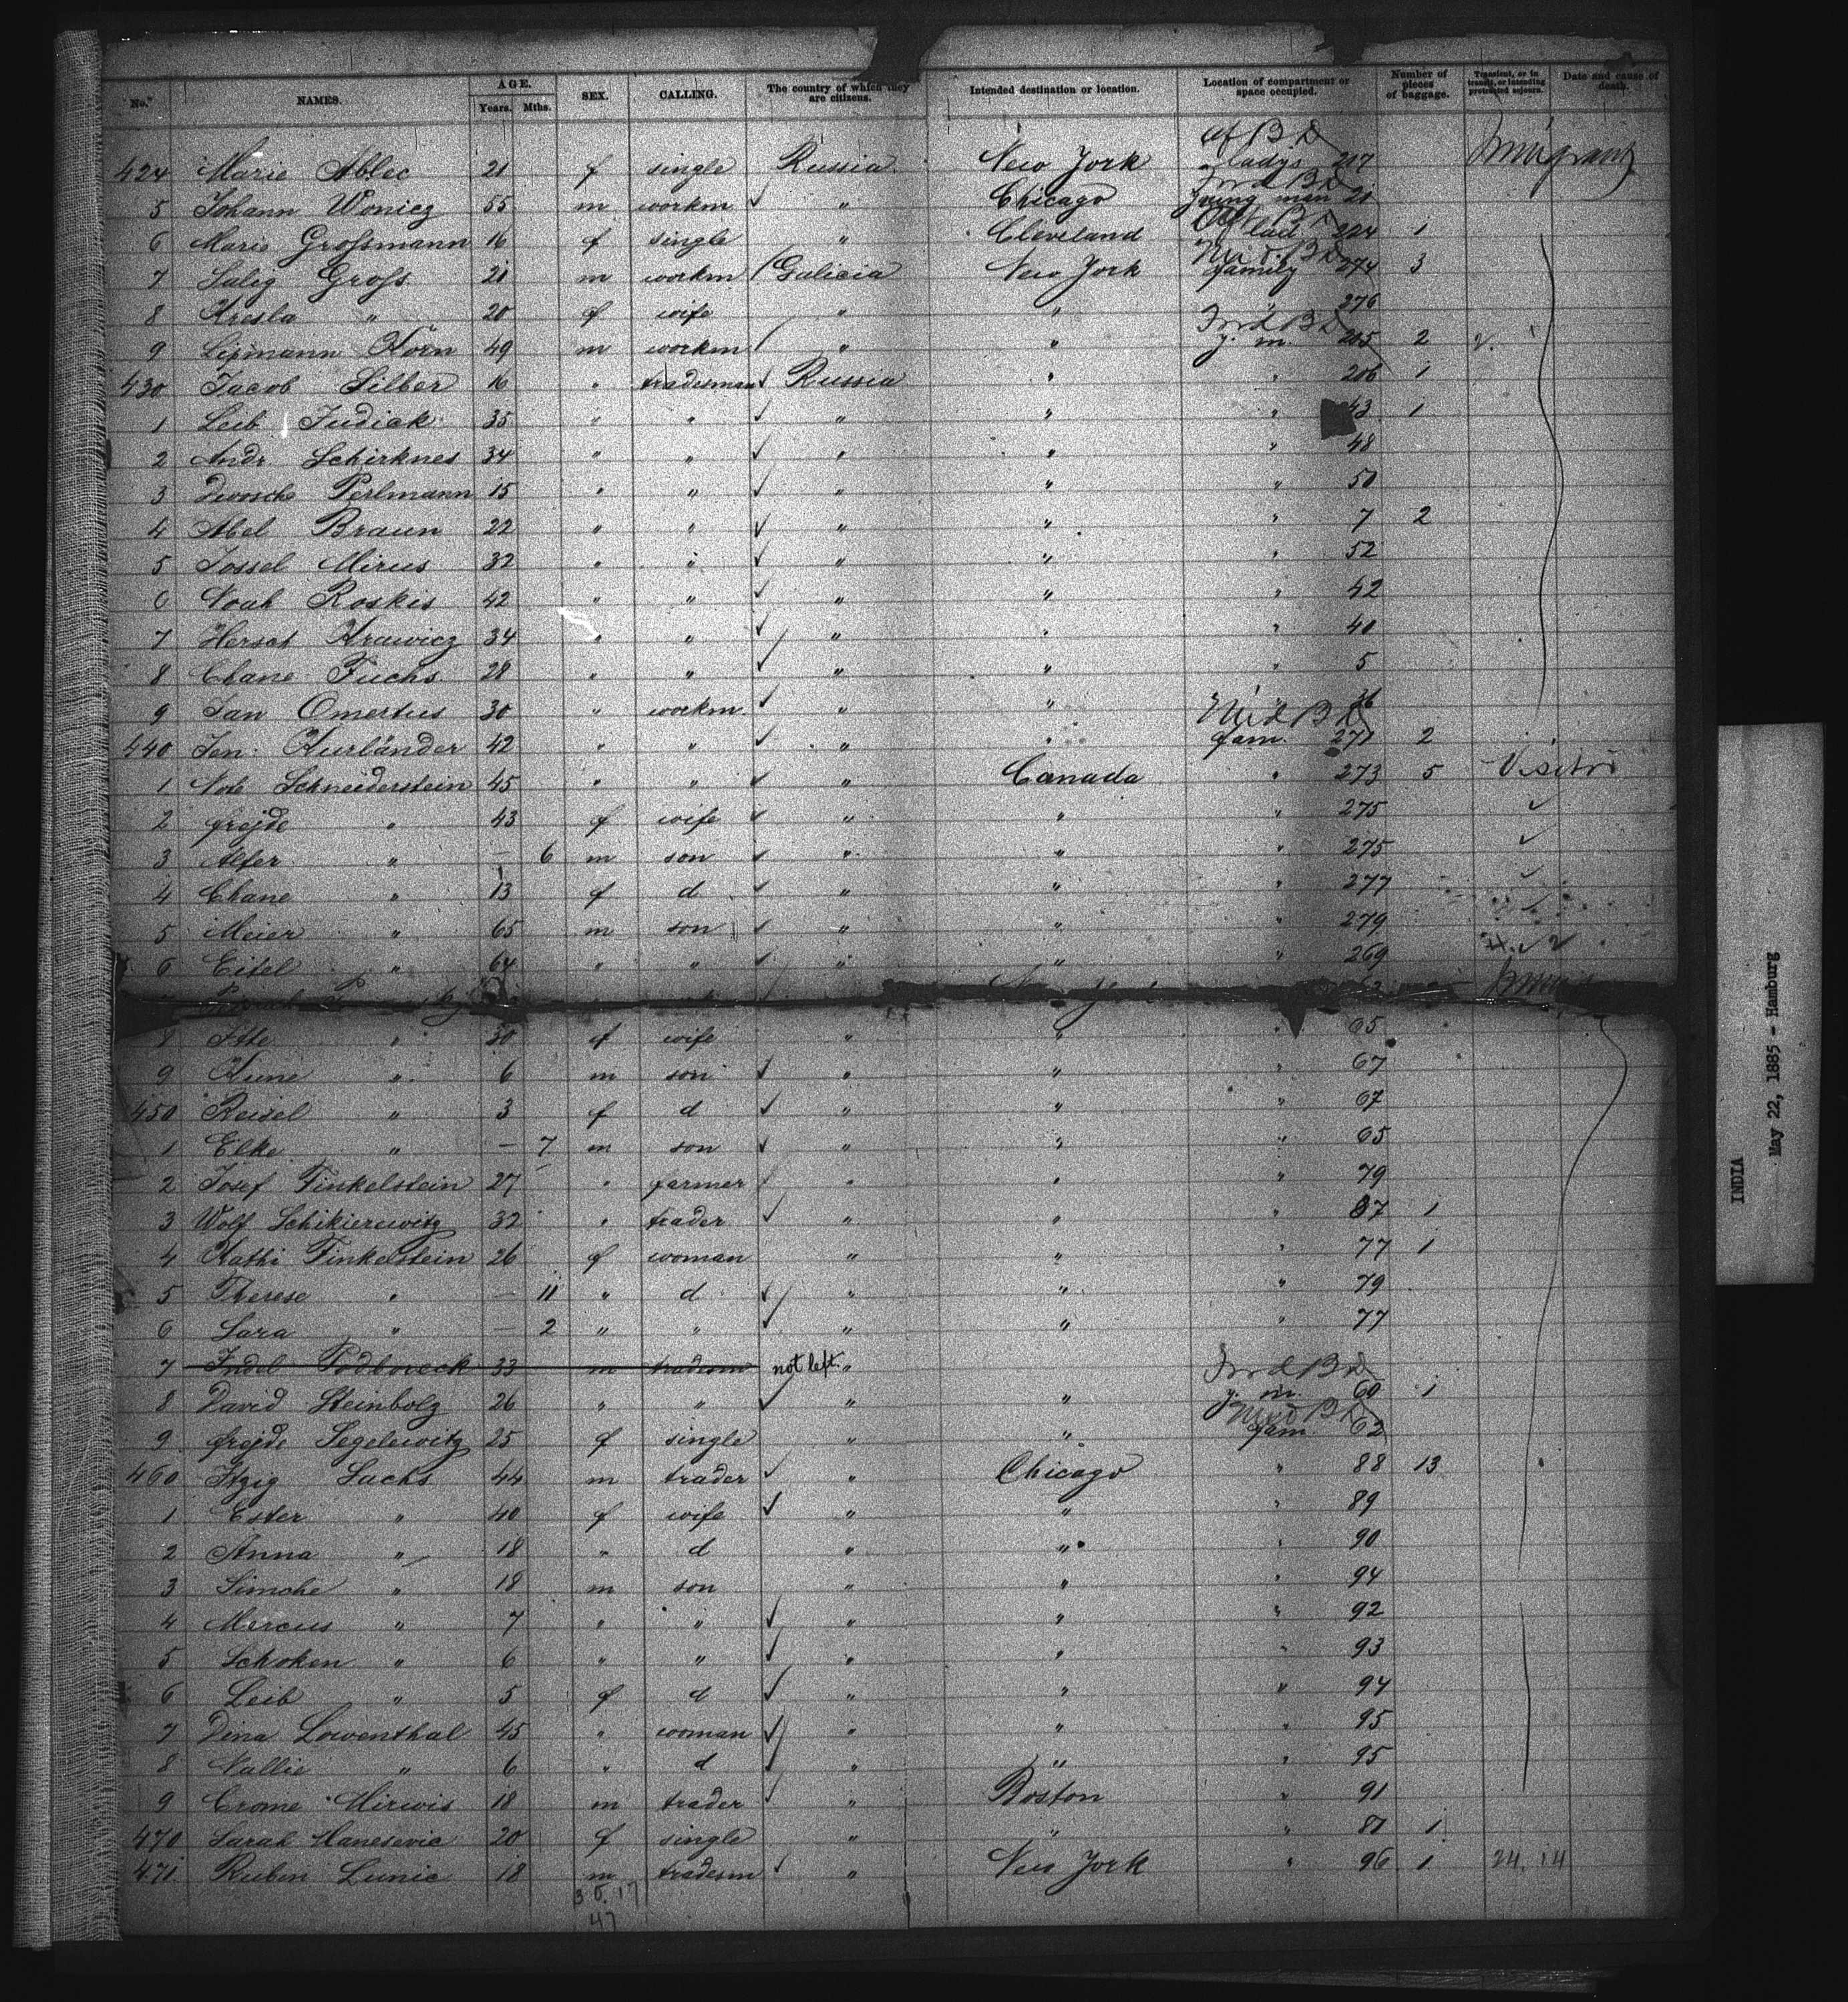 No. NAMES. AGE. Years. Mths. SEX. CALLING. The country of which they are citizens. Intended destination or location. Location of compartment or space occupied. Number of pieces of baggage. Transient, or in transit, or intending protracted sojourn. Date and cause of death.
Af B D
424 Marie Ablec 21 f single Russia New York ladys 207
5 Johann Wonicz 55 m workm " Chicago young man 21
6 Marie Großmann 16 f single " Cleveland 224 1
7 Salig Groß 21 m workm Galicia New York family 274 3
8 Kresla " 20 f wife " " 276
9 Lipmann Korn 49 m workm " " y. m. 205 2
430 Jacob Silber 16 " tradesman Russia " " 206 1
1 Leib Judick 35 " " " " " 43 1
2 Andr. Schirknes 34 " " " " " 48
3 Dwosche Perlmann 15 " " " " " 50
4 Abel Braun 22 " " " " " 7 2
5 Jossel Mirus 32 " " " " " 52
6 Noah Roskis 42 " " " " " 42
7 Hersch Krawicz 34 " " " " " 40
8 Chane Fuchs 28 " " " " " 5
9 Jan Omertus 30 " workm. " " 36
Mid B D
440 Jen: Kurländer 42 " " " " fam. 271 2
1 Note Schneiderstein 45 " " " Canada " 273 5 Visitor
2 frejde " 43 f wife " " " 275
3 Alter " — 6 m son " " " 275
4 Chane " 13 f d " " " 277
5 Meier " 65 m son " " " 279
6 Eitel " 64 " " " " " 269
8 Itte " 30 f wife " " " 65
9 Kune " 6 m son " " " 67
450 Reisel " 3 f d " " " 67
1 Elke " — 7 m son " " " 65
2 Josef Finkelstein 27 " farmer " " " 79
3 Wolf Schikierewitz 32 " trader " " " 87 1
4 Kathi Finkelstein 26 f woman " " " 77 1
5 Therese " — 11 " d " " " 79
6 Sara " — 2 " " " " " 77
7 Indel Podboreck 33 m tradesm not left "
8 David Steinbolz 26 " " " " y. m. 60 1
9 frejde Segelewitz 25 f single " " fam 62
460 Itzig Sachs 44 m trader " Chicago " 88 13
1 Ester " 40 f wife " " " 89
2 Anna " 18 " d " " " 90
3 Simche " 18 m son " " " 94
4 Marcus " 7 " " " " " 92
5 Schoken " 6 " " " " " 93
6 Leib " 5 f d " " " 94
7 Dina Lowenthal 45 " woman " " " 95
8 Nallie " 6 " d " " " 95
9 Crome Mirwis 18 m trader " Boston " 91
470 Sarah Hanesevic 20 f single " " " 81 1
471 Ruben Lunic 18 m tradesm " New York " 96 1 24. 14
30. 17
47
INDIA
May 22, 1885 - Hamburg